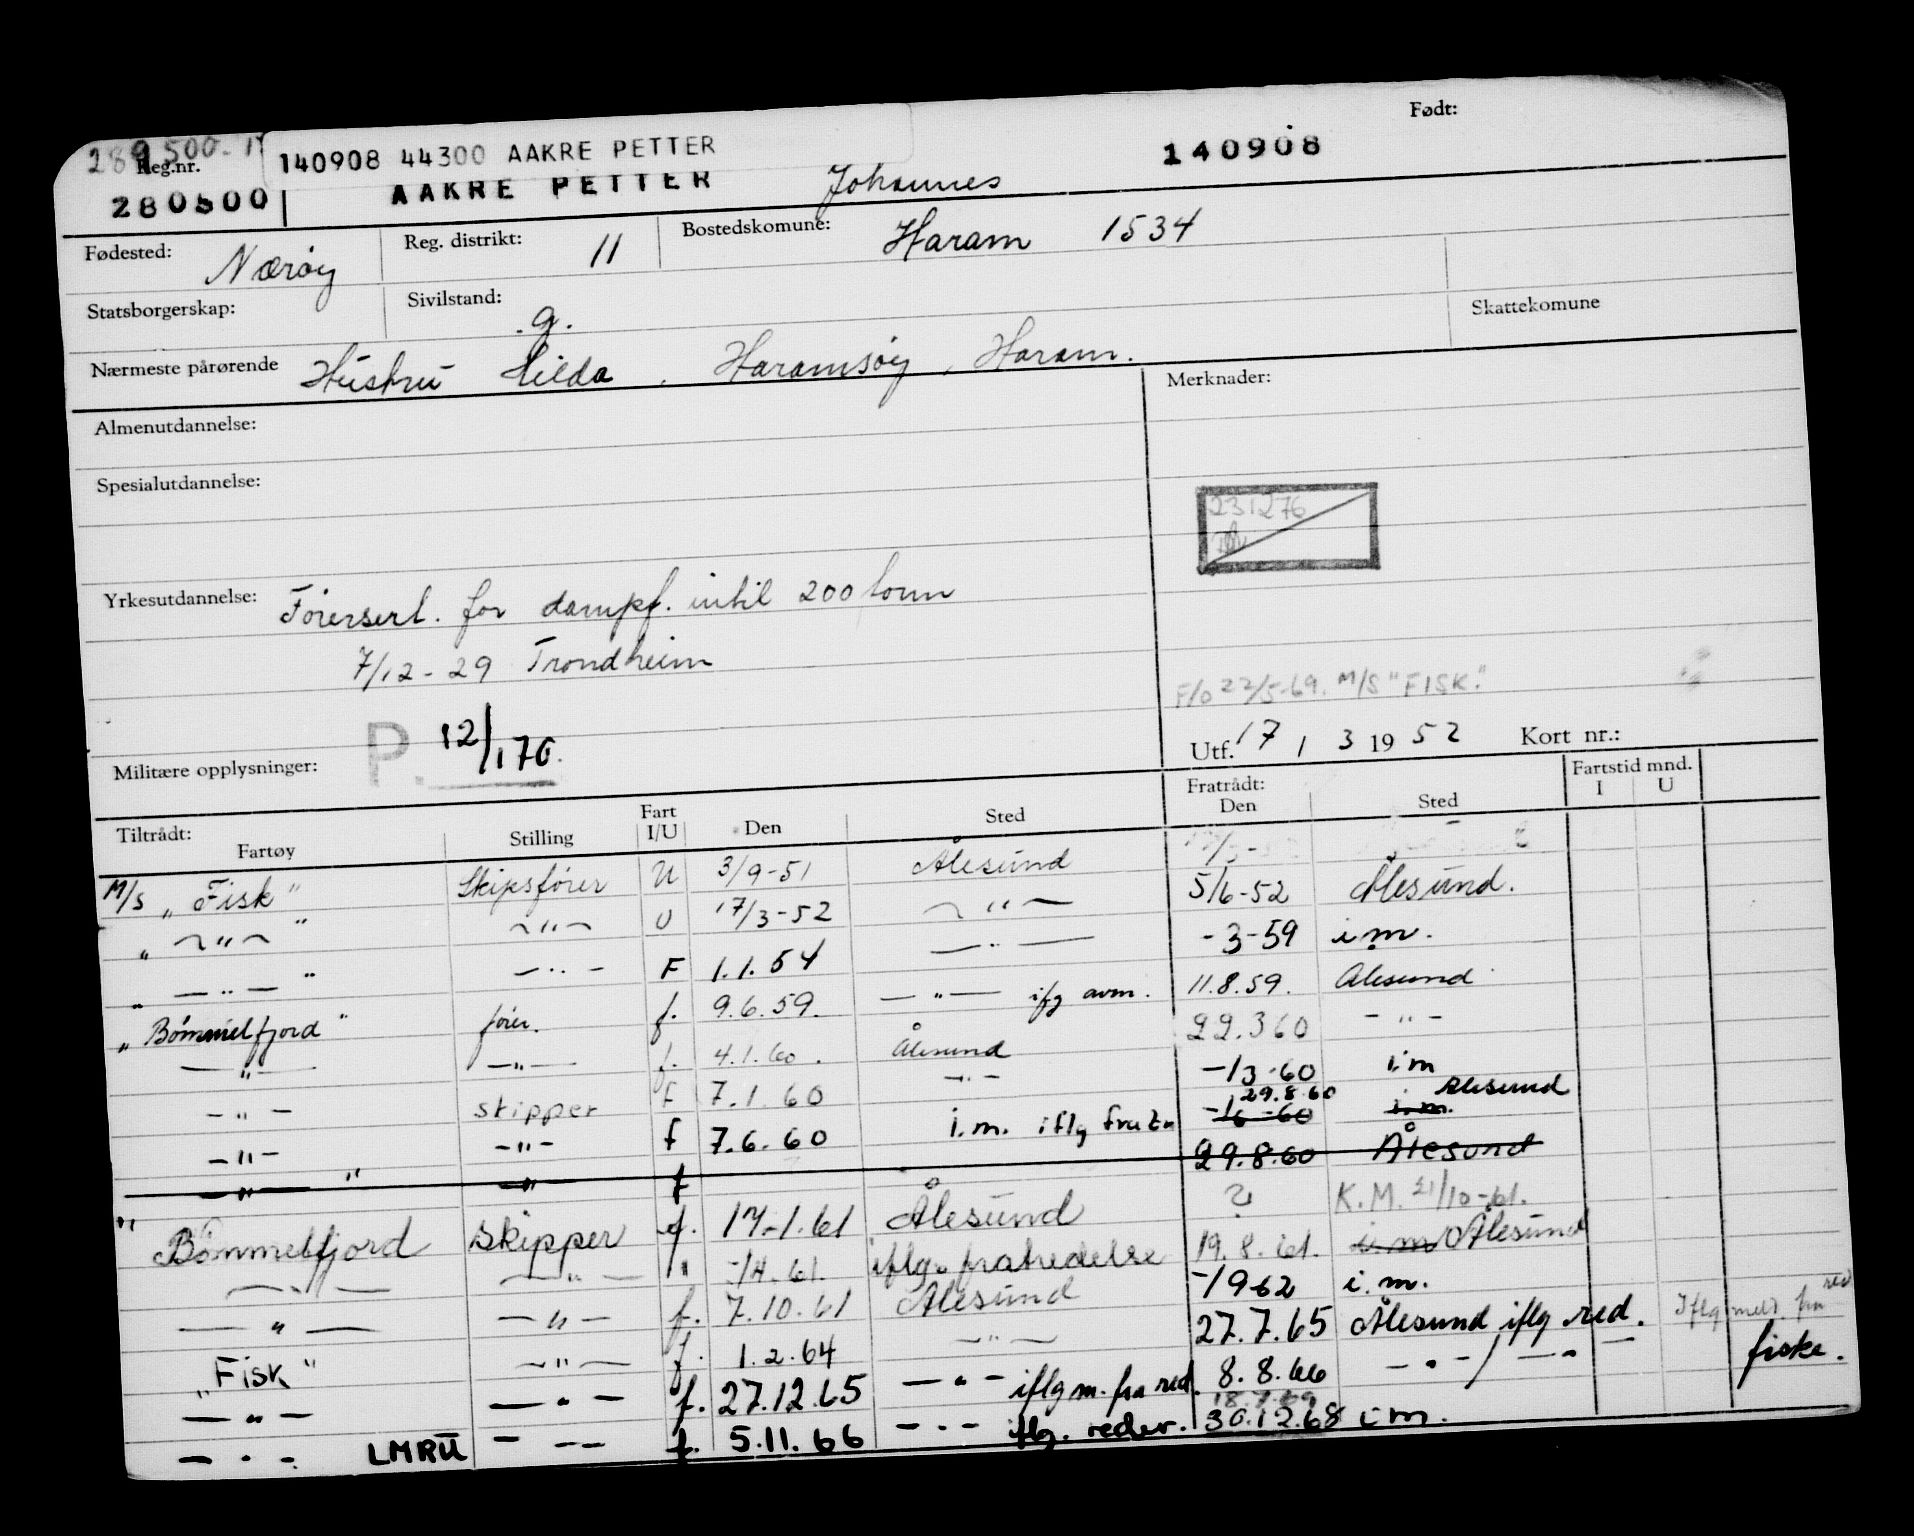 Født:
289500-1
Reg.nr.
140908 44300 AAKRE PETTER
140908
280500 AAKRE PETTER Johannes
Fødested: Nærøy Reg. distrikt: 11 Bostedskomune: Haram 1534
Statsborgerskap: Sivilstand: .g. Skattekomune
Nærmeste pårørende Hustru Hilda, Haramsøy, Haram.
Almenutdannelse: Merknader:
Spesialutdannelse:
231276
Yrkesutdannelse: Førersert. for dampf. intil 200 tonn
7/12-29 Trondheim
F/o 22/5-69. M/S "FISK."
Militære opplysninger: P. 12/170.
Utf. 17 / 3 19 52 Kort nr.:
Tiltrådt: Fartøy Stilling Fart I/U Den Sted Fratrådt: Den Sted Fartstid mnd. I U
M/S "Fisk" Skipsfører U 3/9-51 Ålesund
" -"- " -"- U 17/3-52 -"- 5/6-52 Ålesund.
" -"- " -"- F 1.1.54 -"- -3-59 i.m.
" Bømmelfjord " fører. f. 9.6.59. -"- ifg avm. 11.8.59. Ålesund
-"- -"- f. 4.1.60. Ålesund 22.3 60 -"-
-"- skipper f 7.1.60 -"- -13-60 i.m
-"- -"- f 7.6.60 i.m. iflg fratr 29.8.60 -16-60 i.m. Ålesund
-"- " -"- f 29.8.60 Ålesund
" Bømmelfjord skipper f. 17.-1.61 Ålesund ? K.M. 21/10-61.
-"- -"- " -14.61. iflg. fratredelse 19.8.61. i m Ålesund
-"- -"- f. 7.10.61 Ålesund -1962 i.m.
"Fisk" -"- f. 1.2.64 -"- 27.7.65 Ålesund iflg red. Iflg meld. fra red
-"- -"- f. 27.12.65 -"- iflg m. fra red. 8.8.66 -"- / -"- fiske.
18.7.69
-"- LMRU -"- f. 5.11.66 -"- iflg. reder. 30.12.68 i m.